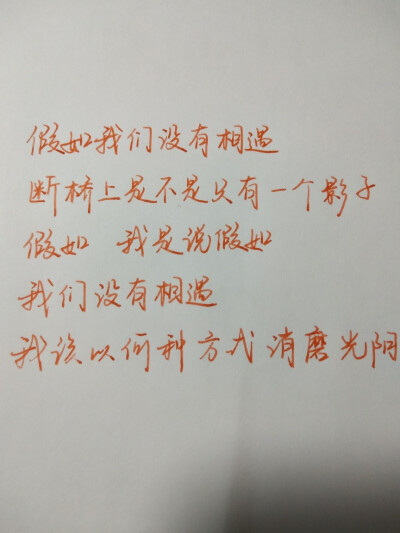 假如我们没有相遇
断桥上是不是只有一个影子
假如 我是说假如
我们没有相遇
我该以何种方式消磨光阴